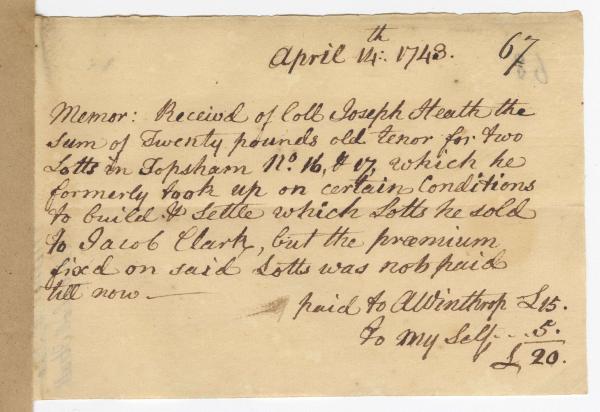 April 14th: 1743. 67
Memor: Receivd of Coll Joseph Heath the
Sum of Twenty pounds old tenor for two
Lotts in Topsham No. 16, & 17, which he
formerly took up on certain Conditions
to build & Settle which Lotts he sold
to Jacob Clark, but the præmium
fixd on said Lotts was not paid
till now —
paid to AWinthrop £15.
to my Self - - - 5.
£ 20.